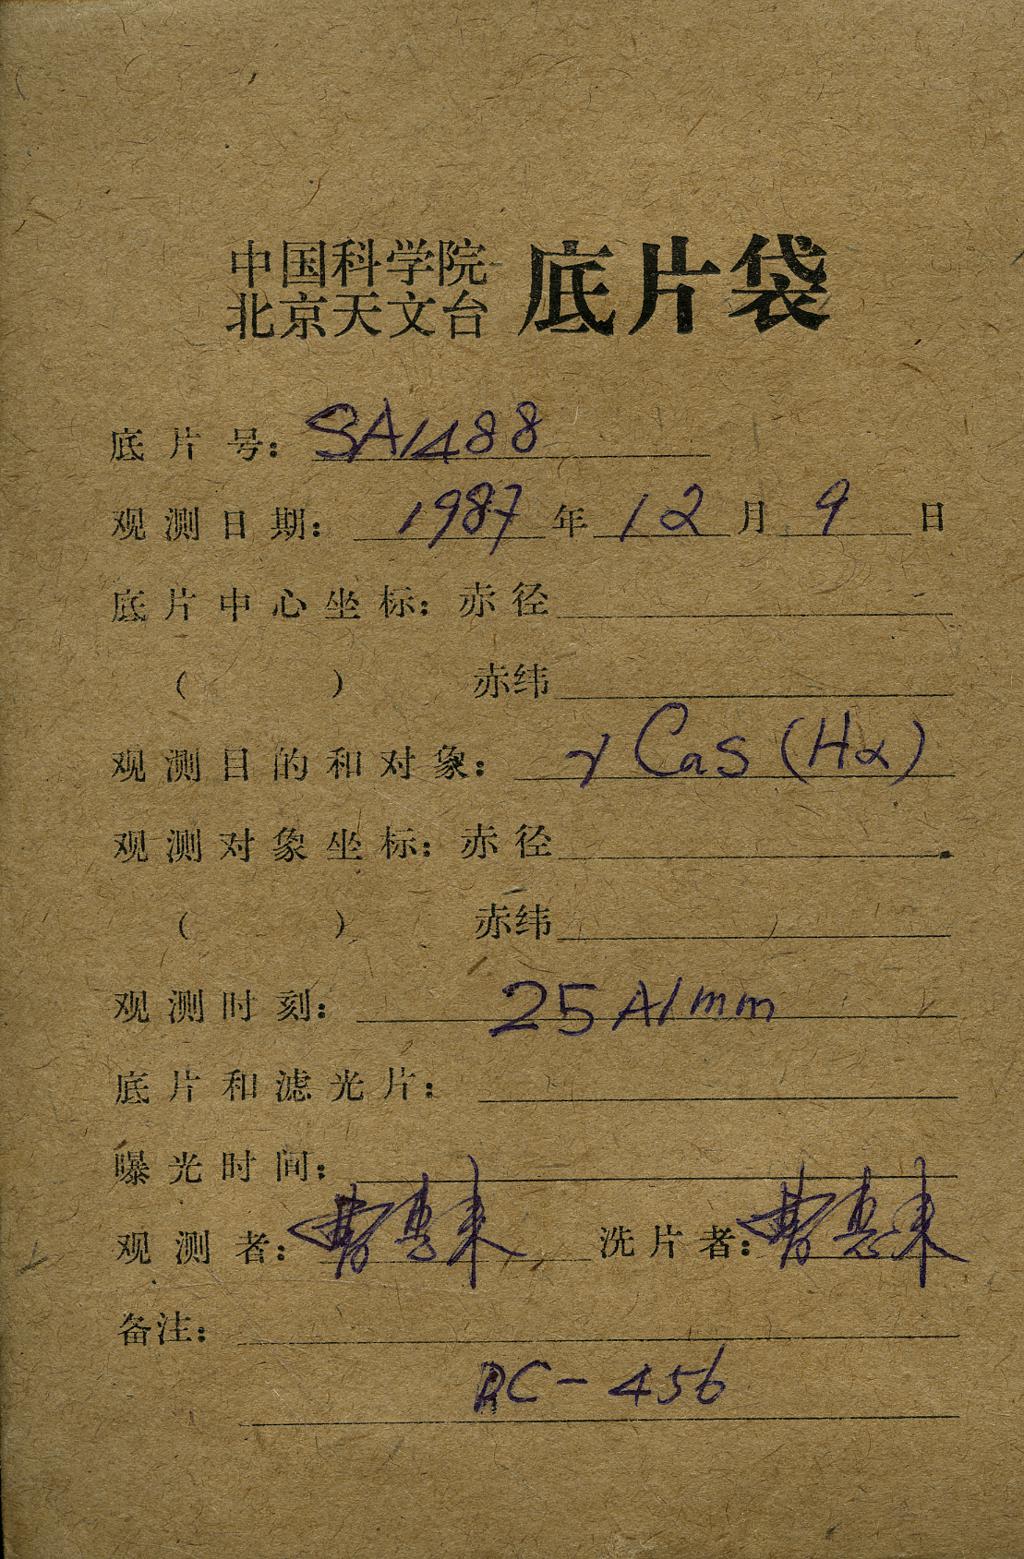 中国科学院
北京天文台 底片袋
底片号: SA1488
观测日期: 1987年12月9日
底片中心坐标: 赤径
( ) 赤纬
观测目的和对象: γ Cas (Hα)
观测对象坐标: 赤径
( ) 赤纬
观测时刻: 25 A/mm
底片和滤光片:
曝光时间:
观测者: 曹惠来 洗片者: 曹惠来
备注:
RC-456